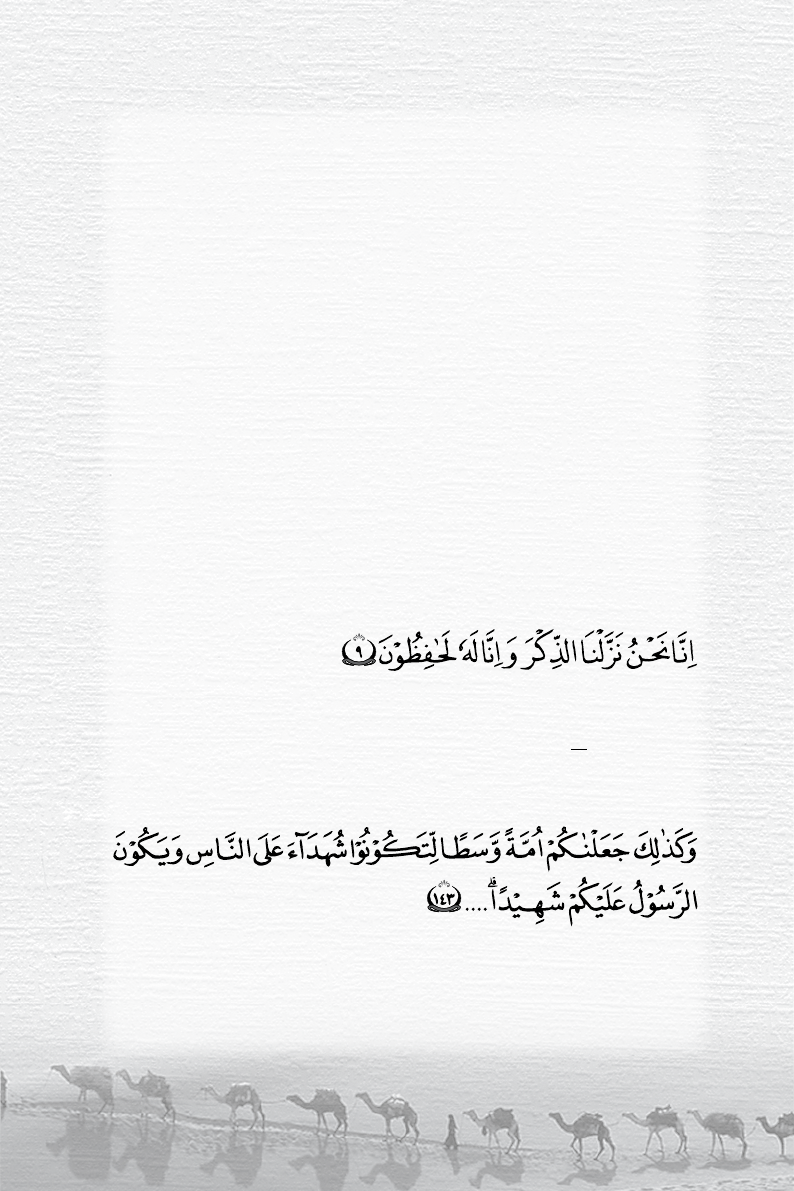 اِنَّا نَحْنُ نَزَّلْنَا الذِّكْرَ وَ اِنَّا لَهٗ لَحٰفِظُوْنَ ﴿٩﴾
—
وَكَذٰلِكَ جَعَلْنٰكُمْ اُمَّةً وَّسَطًا لِّتَكُوْنُوْا شُهَدَآءَ عَلَى النَّاسِ وَ يَكُوْنَ
الرَّسُوْلُ عَلَيْكُمْ شَهِيْدًاؕ .... ﴿١٤٣﴾